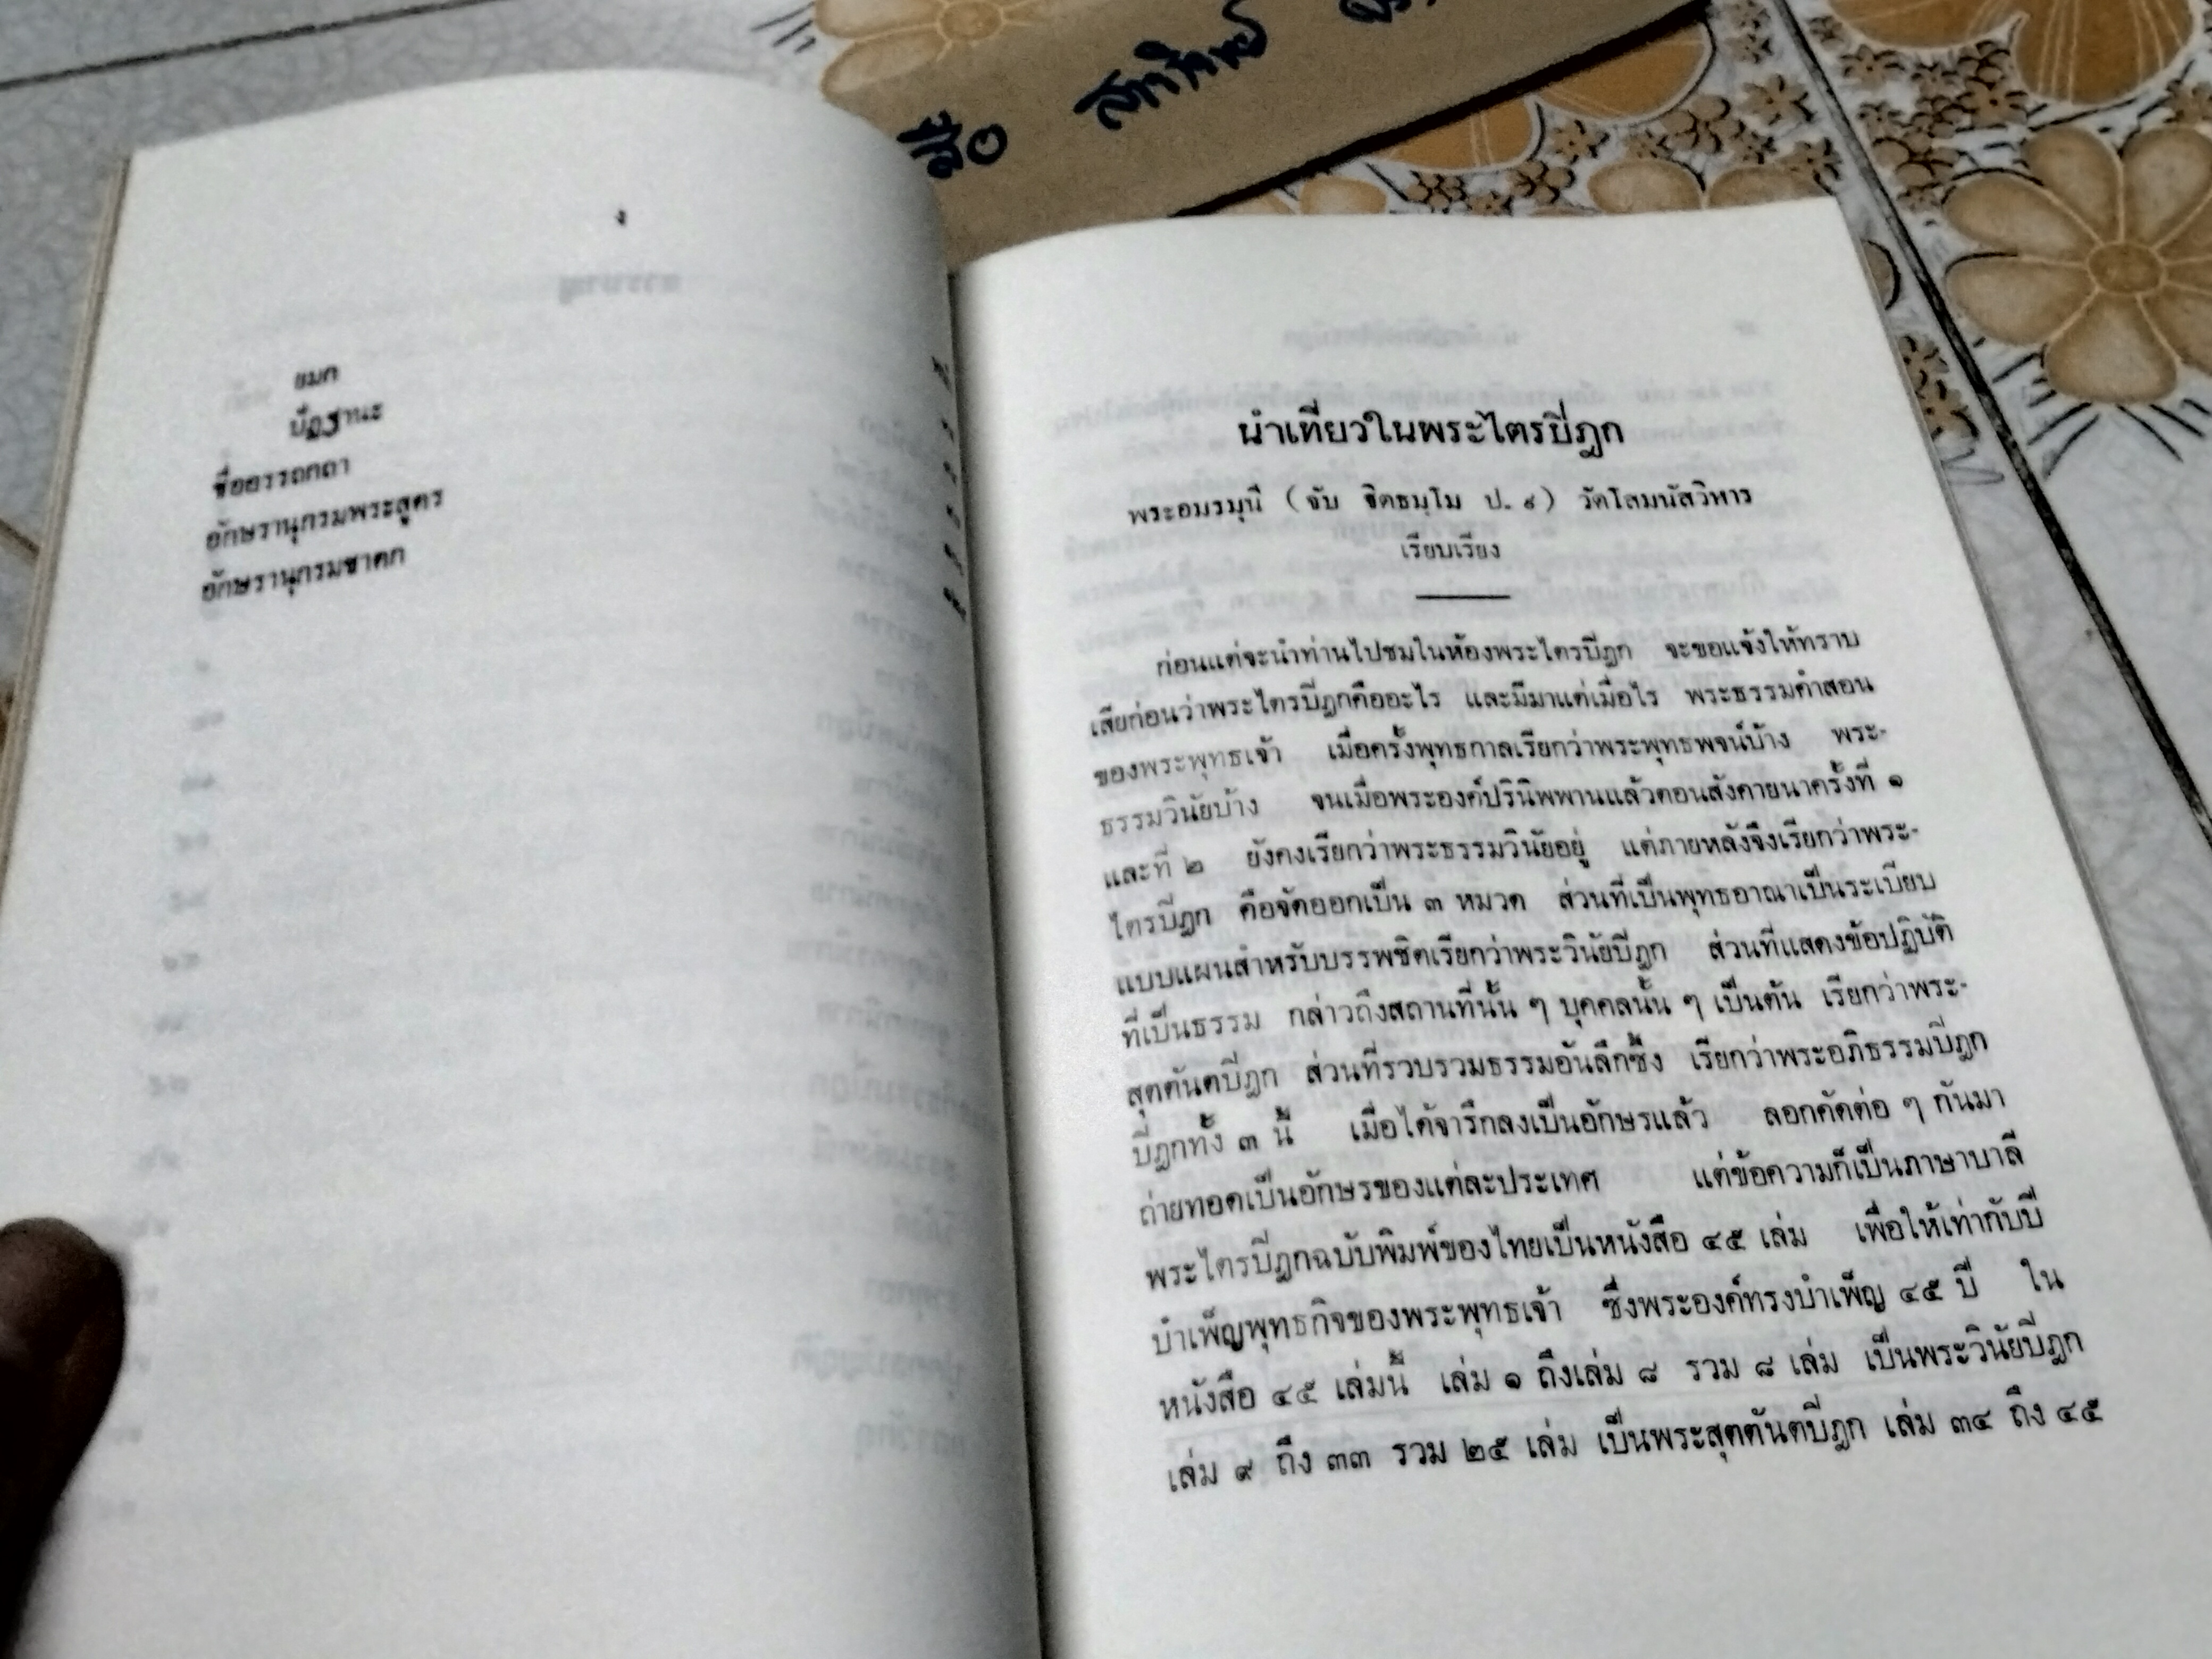 ชื่อ
ง
ยมก
ปัฏฐานะ
ชื่ออรรถกถา
อักษรานุกรมพระสูตร
อักษรานุกรมชาดก
นำเที่ยวในพระไตรปิฎก
พระอมรมุนี ( จับ ฐิตธมฺโม ป. ๙ ) วัดโสมนัสวิหาร
เรียบเรียง
ก่อนแต่จะนำท่านไปชมในห้องพระไตรปิฎก จะขอแจ้งให้ทราบ
เสียก่อนว่าพระไตรปิฎกคืออะไร และมีมาแต่เมื่อไร พระธรรมคำสอน
ของพระพุทธเจ้า เมื่อครั้งพุทธกาลเรียกว่าพระพุทธพจน์บ้าง พระ-
ธรรมวินัยบ้าง จนเมื่อพระองค์ปรินิพพานแล้วตอนสังคายนาครั้งที่ ๑
และที่ ๒ ยังคงเรียกว่าพระธรรมวินัยอยู่ แต่ภายหลังจึงเรียกว่าพระ-
ไตรปิฎก คือจัดออกเป็น ๓ หมวด ส่วนที่เป็นพุทธอาณาเป็นระเบียบ
แบบแผนสำหรับบรรพชิตเรียกว่าพระวินัยปิฎก ส่วนที่แสดงข้อปฏิบัติ
ที่เป็นธรรม กล่าวถึงสถานที่นั้น ๆ บุคคลนั้น ๆ เป็นต้น เรียกว่าพระ-
สุตตันตปิฎก ส่วนที่รวบรวมธรรมอันลึกซึ้ง เรียกว่าพระอภิธรรมปิฎก
ปิฎกทั้ง ๓ นี้ เมื่อได้จารึกลงเป็นอักษรแล้ว ลอกคัดต่อ ๆ กันมา
ถ่ายทอดเป็นอักษรของแต่ละประเทศ แต่ข้อความก็เป็นภาษาบาลี
พระไตรปิฎกฉบับพิมพ์ของไทยเป็นหนังสือ ๔๕ เล่ม เพื่อให้เท่ากับปี
บำเพ็ญพุทธกิจของพระพุทธเจ้า ซึ่งพระองค์ทรงบำเพ็ญ ๔๕ ปี ใน
หนังสือ ๔๕ เล่มนี้ เล่ม ๑ ถึงเล่ม ๘ รวม ๘ เล่ม เป็นพระวินัยปิฎก
เล่ม ๙ ถึง ๓๓ รวม ๒๕ เล่ม เป็นพระสุตตันตปิฎก เล่ม ๓๔ ถึง ๔๕